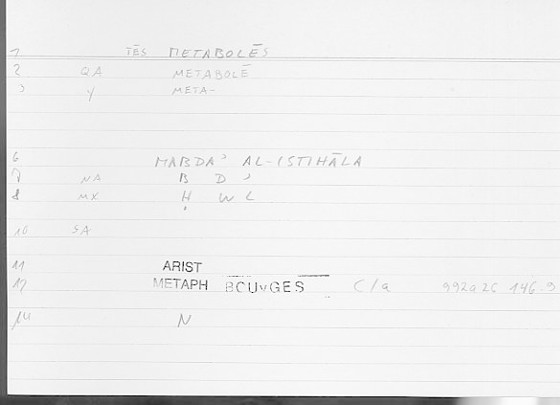 1 TĒS METABOLĒS
2 QA METABOLĒ
3 Y META-
6 MABDAʾ AL-ISTIḤĀLA
7 NA B D ʾ
8 MX Ḥ W L
10 SA
11 ARIST
12 METAPH BOUYGES C/a 992a26 146.9
14 N